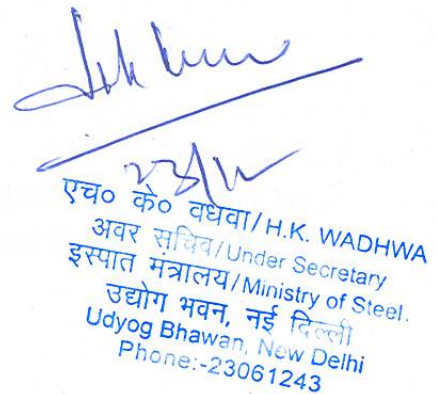 एच० के० वधवा/H.K. WADHWA
अवर सचिव/Under Secretary
इस्पात मंत्रालय/Ministry of Steel.
उद्योग भवन, नई दिल्ली
Udyog Bhawan, New Delhi
Phone:-23061243